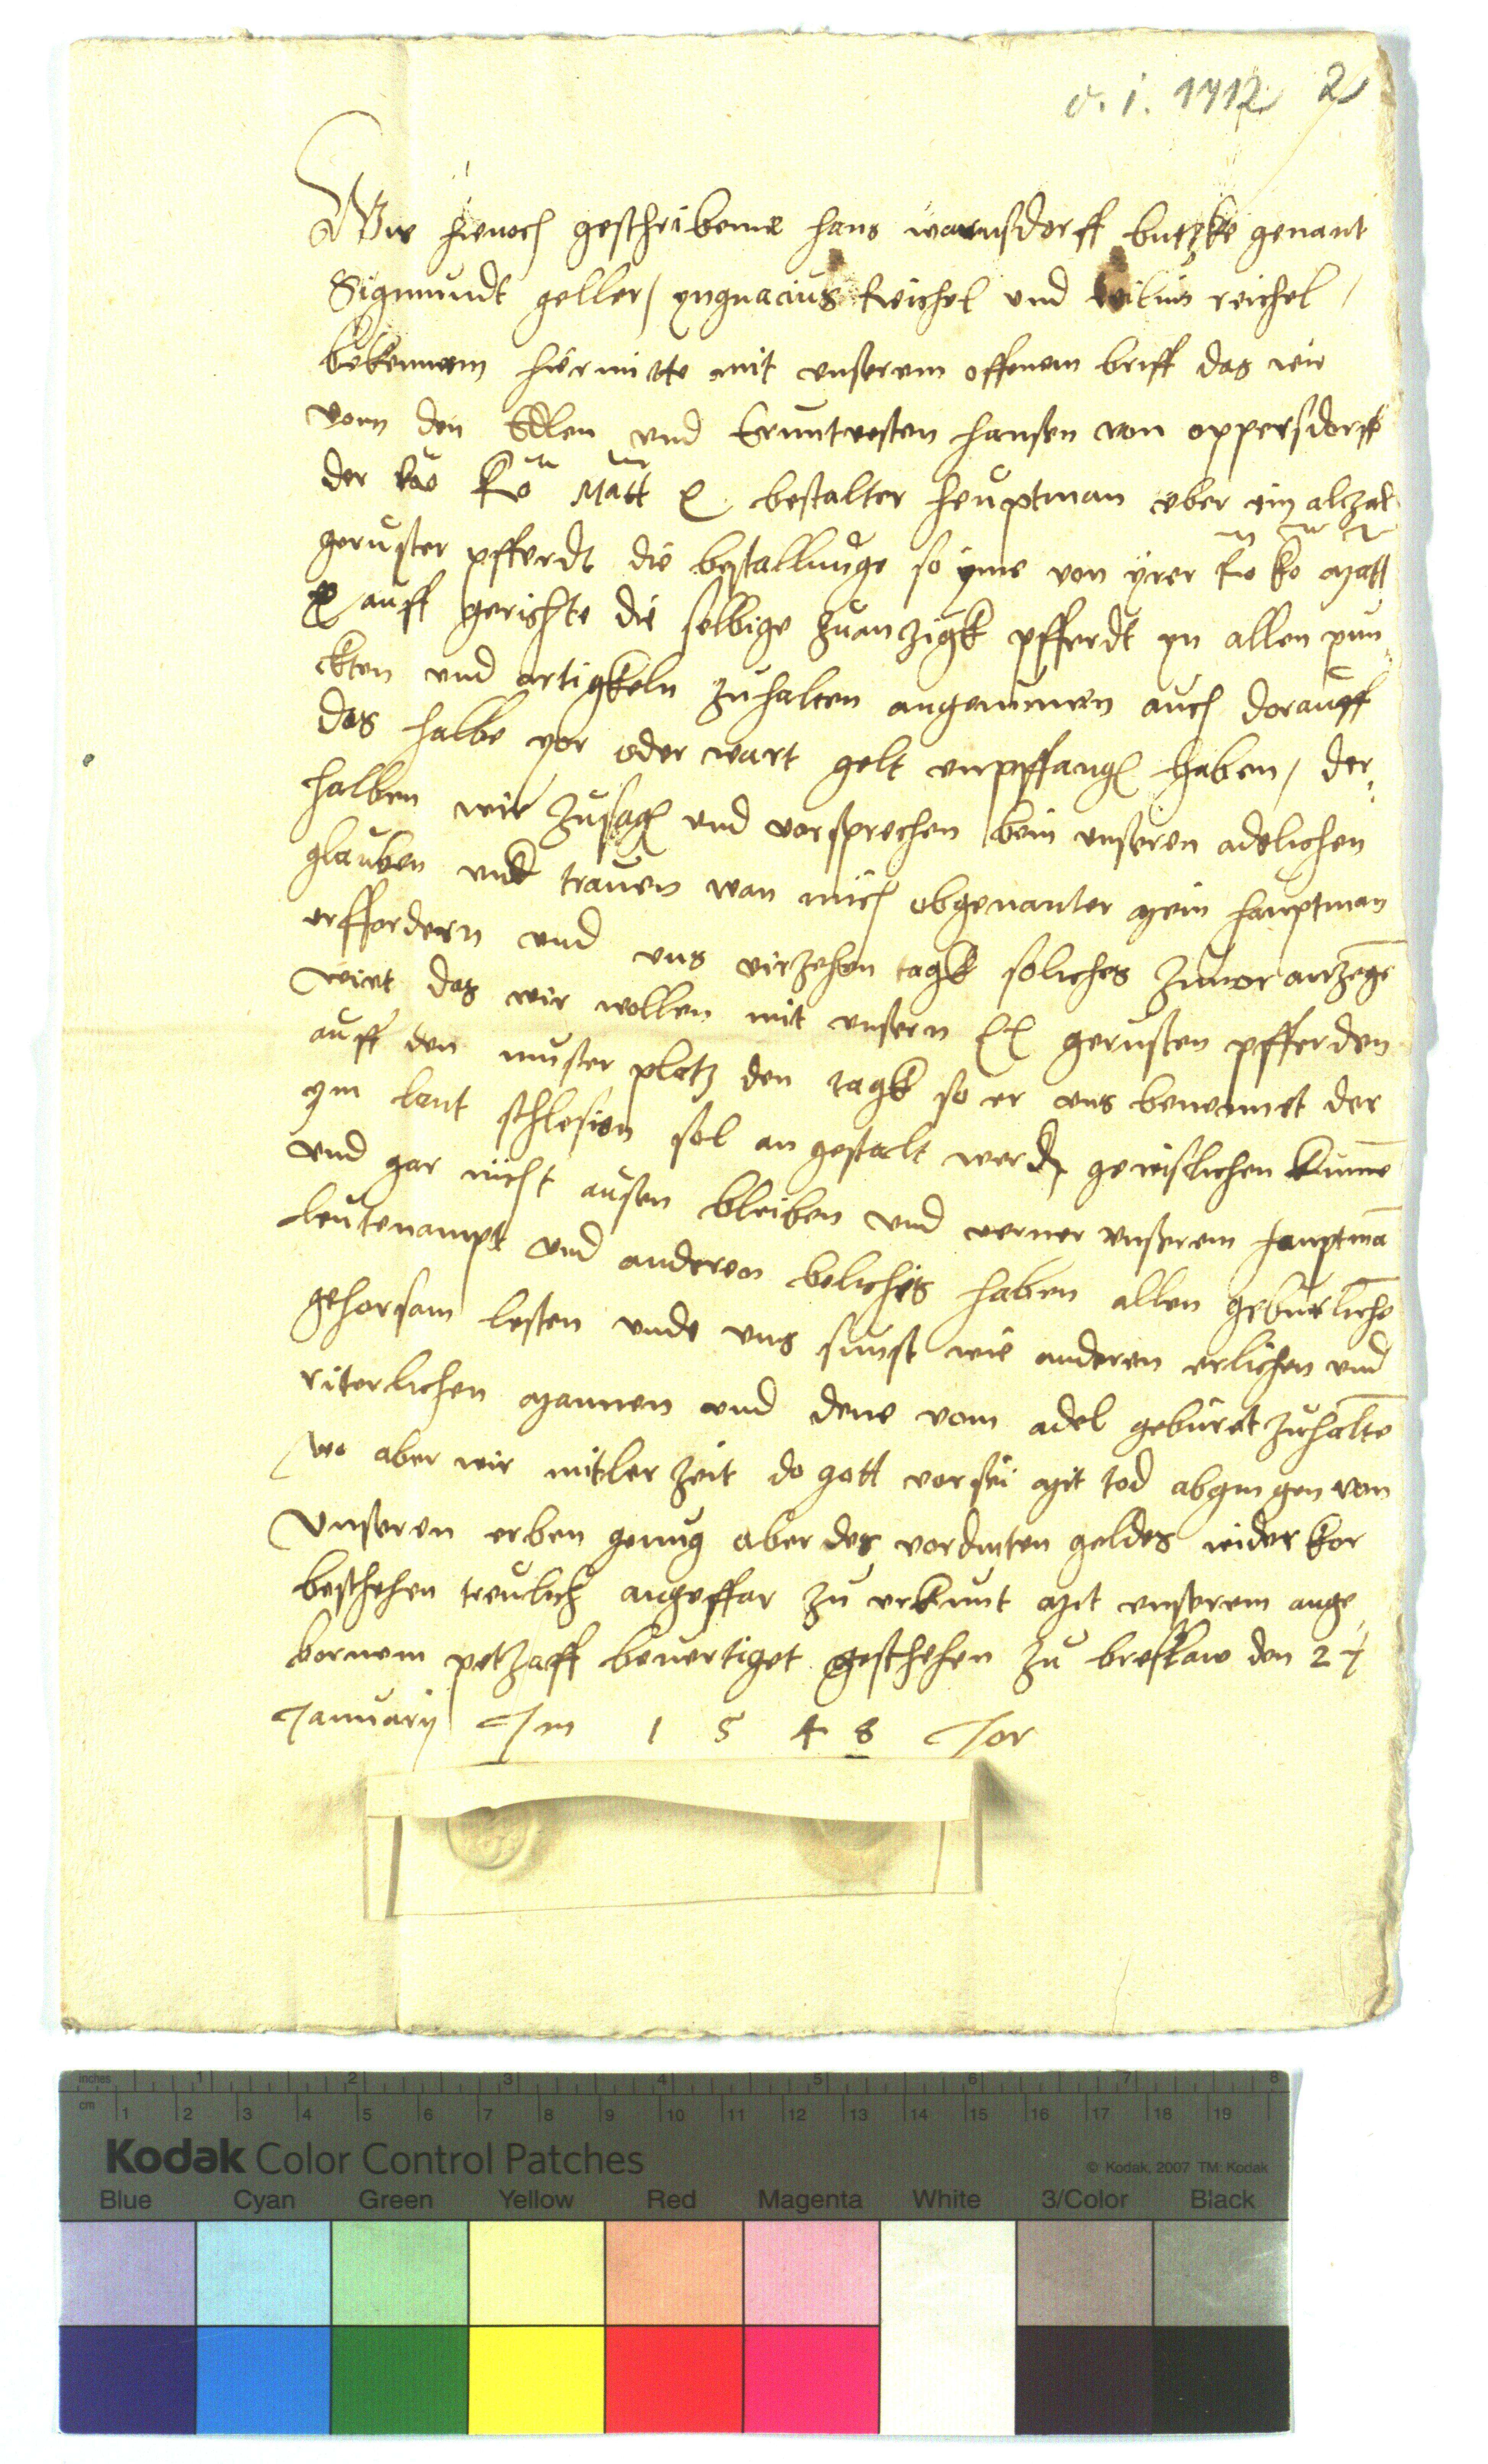 d. i. 1712 2
Wir hienoch geschribenne hans warnsdorff butzke genant
Sigmundt geller / yngnacius Reichel und reichel /
bekennen hiermitte mit unserem offenem briff das wir
vom den Edlen und Ernntvesten hansen von oppersdorff
der Ro Ko Matt bestalter heuptman uber ein alzal
geruster pfferdt die bestallunge so yme von yrer Ro Ko Matt
auff gerichte die selbige zuanzigk pfferdt yn allen pun
ckten und artigkeln zuhalten angenumen auch dorauff
das halbe vor oder wart gelt enpffangen haben / der
halben wir zusagen und vorsprechen bein unseren adelichen
glauben und trauen wan mich obgenanter mein hauptman
erffordern und uns virzehen tagk soliches zuuor anzege
wirt das wir wollen mit unsern XX gerusten pfferden
auff den muster platz den tagk so er uns benennet der
ym lant schlesien sol an gestalt werden gewislichen kume
und gar nicht ausen bleiben und verner unserem hauptma
leutenampt und anderen belichts haben allen geburliche
gehorsam lesten unde uns sunst wie anderen erlichen und
riterlichen mannen und dene vom adel geburet zuhalte
wo aber wir mitler zeit do gott vor sei mit tod abgingen von
unseren erben genug aber des vordinten geldes wider kor
beschehen treulich angeffar zu urkunt mit unserem ange
bornem petzaff beuertiget geschehen zu breslaw den 24
Januarij Im 1 5 4 8 Jor
inches 1 2 3 4 5 6 7 8
cm 1 2 3 4 5 6 7 8 9 10 11 12 13 14 15 16 17 18 19
Kodak Color Control Patches © Kodak, 2007 TM: Kodak
Blue Cyan Green Yellow Red Magenta White 3/Color Black